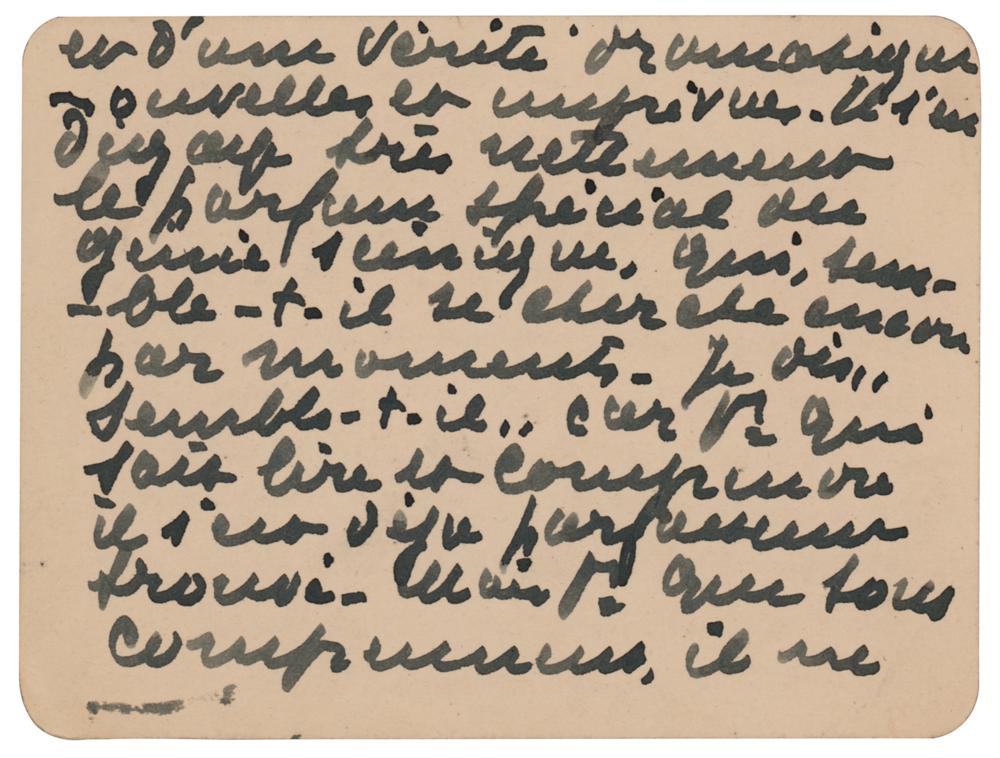 et d'une vérité dramatique
nouvelles et imprévues. Il s'en
dégage très nettement
le parfum spécial du
génie scénique, qui, sem-
-ble-t-il se cherche encore
par moments - Je dis ,,
semble-t-il ,, car pr qui
sait lire et comprendre
il s'est déjà parfaitement
trouvé - Mais pr que tous
comprennent, il ne